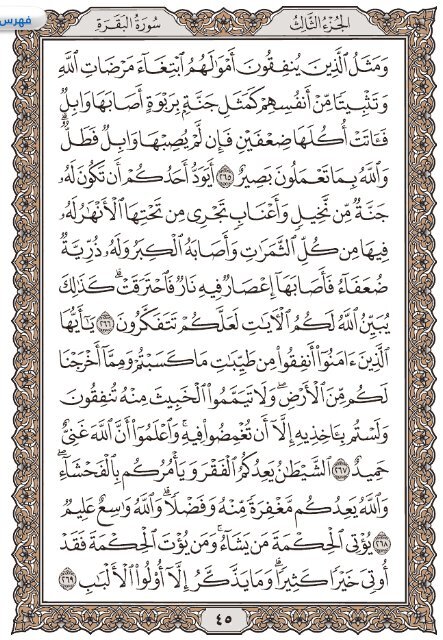 فهرس
الجزء الثالث سورة البقرة
وَمَثَلُ ٱلَّذِينَ يُنفِقُونَ أَمْوَٰلَهُمُ ٱبْتِغَآءَ مَرْضَاتِ ٱللَّهِ
وَتَثْبِيتًا مِّنْ أَنفُسِهِمْ كَمَثَلِ جَنَّةٍۭ بِرَبْوَةٍ أَصَابَهَا وَابِلٌ
فَـَٔاتَتْ أُكُلَهَا ضِعْفَيْنِ فَإِن لَّمْ يُصِبْهَا وَابِلٌ فَطَلٌّۗ
وَٱللَّهُ بِمَا تَعْمَلُونَ بَصِيرٌ ٢٦٥ أَيَوَدُّ أَحَدُكُمْ أَن تَكُونَ لَهُۥ
جَنَّةٌ مِّن نَّخِيلٍ وَأَعْنَابٍ تَجْرِى مِن تَحْتِهَا ٱلْأَنْهَٰرُ لَهُۥ
فِيهَا مِن كُلِّ ٱلثَّمَرَٰتِ وَأَصَابَهُ ٱلْكِبَرُ وَلَهُۥ ذُرِّيَّةٌ
ضُعَفَآءُ فَأَصَابَهَآ إِعْصَارٌ فِيهِ نَارٌ فَٱحْتَرَقَتْۗ كَذَٰلِكَ
يُبَيِّنُ ٱللَّهُ لَكُمُ ٱلْـَٔايَٰتِ لَعَلَّكُمْ تَتَفَكَّرُونَ ٢٦٦ يَٰٓأَيُّهَا
ٱلَّذِينَ ءَامَنُوٓا۟ أَنفِقُوا۟ مِن طَيِّبَٰتِ مَا كَسَبْتُمْ وَمِمَّآ أَخْرَجْنَا
لَكُم مِّنَ ٱلْأَرْضِۖ وَلَا تَيَمَّمُوا۟ ٱلْخَبِيثَ مِنْهُ تُنفِقُونَ
وَلَسْتُم بِـَٔاخِذِيهِ إِلَّآ أَن تُغْمِضُوا۟ فِيهِۚ وَٱعْلَمُوٓا۟ أَنَّ ٱللَّهَ غَنِىٌّ
حَمِيدٌ ٢٦٧ ٱلشَّيْطَٰنُ يَعِدُكُمُ ٱلْفَقْرَ وَيَأْمُرُكُم بِٱلْفَحْشَآءِۖ
وَٱللَّهُ يَعِدُكُم مَّغْفِرَةً مِّنْهُ وَفَضْلًاۗ وَٱللَّهُ وَٰسِعٌ عَلِيمٌ
٢٦٨ يُؤْتِى ٱلْحِكْمَةَ مَن يَشَآءُۚ وَمَن يُؤْتَ ٱلْحِكْمَةَ فَقَدْ
أُوتِىَ خَيْرًا كَثِيرًاۗ وَمَا يَذَّكَّرُ إِلَّآ أُو۟لُوا۟ ٱلْأَلْبَٰبِ ٢٦٩
٤٥